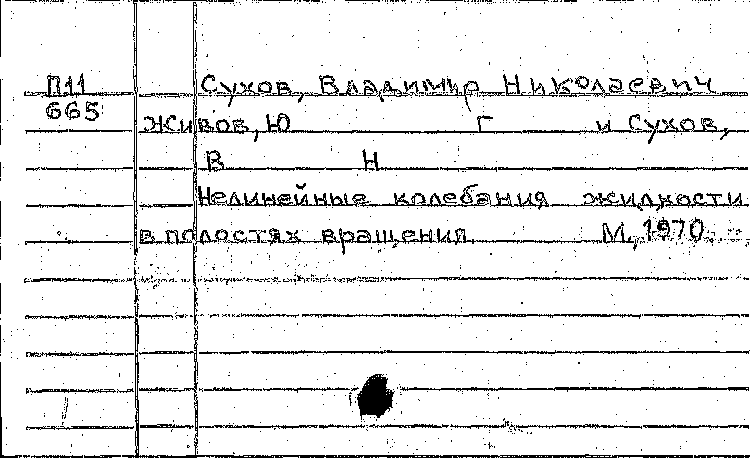 П11 Сухов, Владимир Николаевич
665
Живов, Ю Г и Сухов,
В Н
Нелинейные колебания жидкости
в полостях вращения. М., 1970.